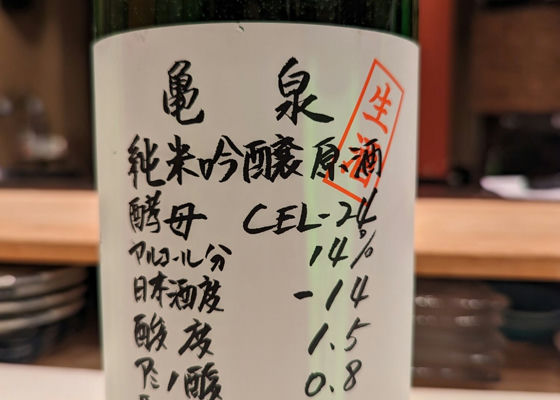 亀泉
生酒
純米吟醸原酒
酵母 CEL-24
アルコール分 14%
日本酒度 -14
酸度 1.5
アミノ酸 0.8